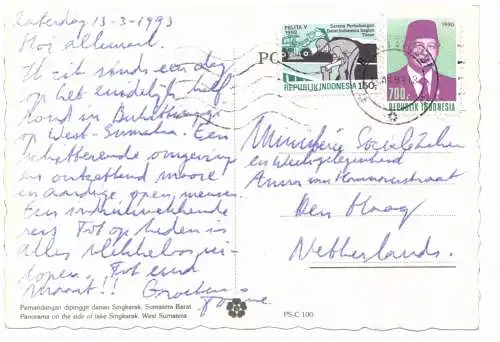 Zaterdag 13-3-1993
Hoi allemaal.
Ik zit sinds een dag
op het eindelijk half
rond in Bukittinggi
op West-Sumatra. Een
schitterende omgeving
en ontzettend mooie
en aardige, open, mensen.
Een indrukwekkende
reis. Tot op heden is
alles vlekkeloos ver-
lopen. Tot eind
maart!! Groetjes
Pemandangan dipinggir danau Singkarak, Sumatera Barat
Panorama on the side of lake Singkarak, West Sumatera
PELITA V
1990
Sarana Perhubungan
Dalam Indonesia bagian
Timur
REPUBLIK INDONESIA 150
1990
700
REPUBLIK INDONESIA
PO
Ministerie Sociale Zaken
en Werkgelegenheid
Anna van Hannoverstraat
Den Haag
Netherlands.
PS-C 100